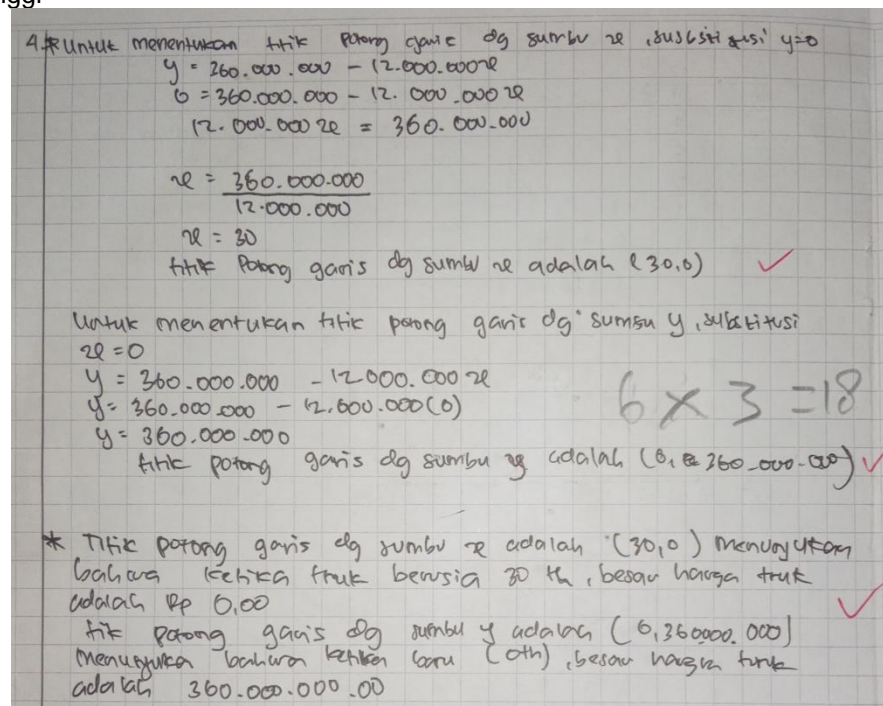 nggi
4. * Untuk menentukan titik potong garis dg sumbu x, substitusi y=0
y = 360.000.000 - 12.000.000x
0 = 360.000.000 - 12.000.000x
12.000.000x = 360.000.000
x = 360.000.000
12.000.000
x = 30
titik Potong garis dg sumbu x adalah (30,0)
Untuk menentukan titik potong garis dg sumbu y, substitusi
x = 0
y = 360.000.000 - 12.000.000x
y = 360.000.000 - 12.000.000(0)
6 x 3 = 18
y = 360.000.000
titik potong garis dg sumbu y adalah (0, 360.000.000)
* Titik potong garis dg sumbu x adalah (30,0) menunjukan
bahwa ketika truk berusia 30 th, besar harga truk
adalah Rp 0,00
titk potong garis dg sumbu y adalah (0,360000.000)
menunjukan bahwa ketika baru (0th), besar harga truk
adalah 360.000.000.00